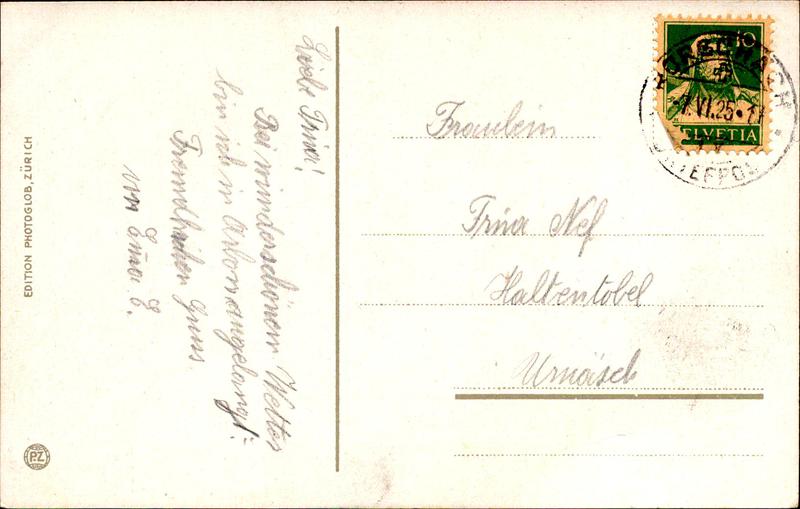 Liebe Trina!
Bei wunderschönem Wetter
bin ich in Arbon angelangt.
Freundlichen Gruss
von Emma E.
Fräulein
Trina Nef
Haltentobel
Urnäsch
10
HELVETIA
VI.25
EDITION PHOTOGLOB, ZÜRICH
P.Z